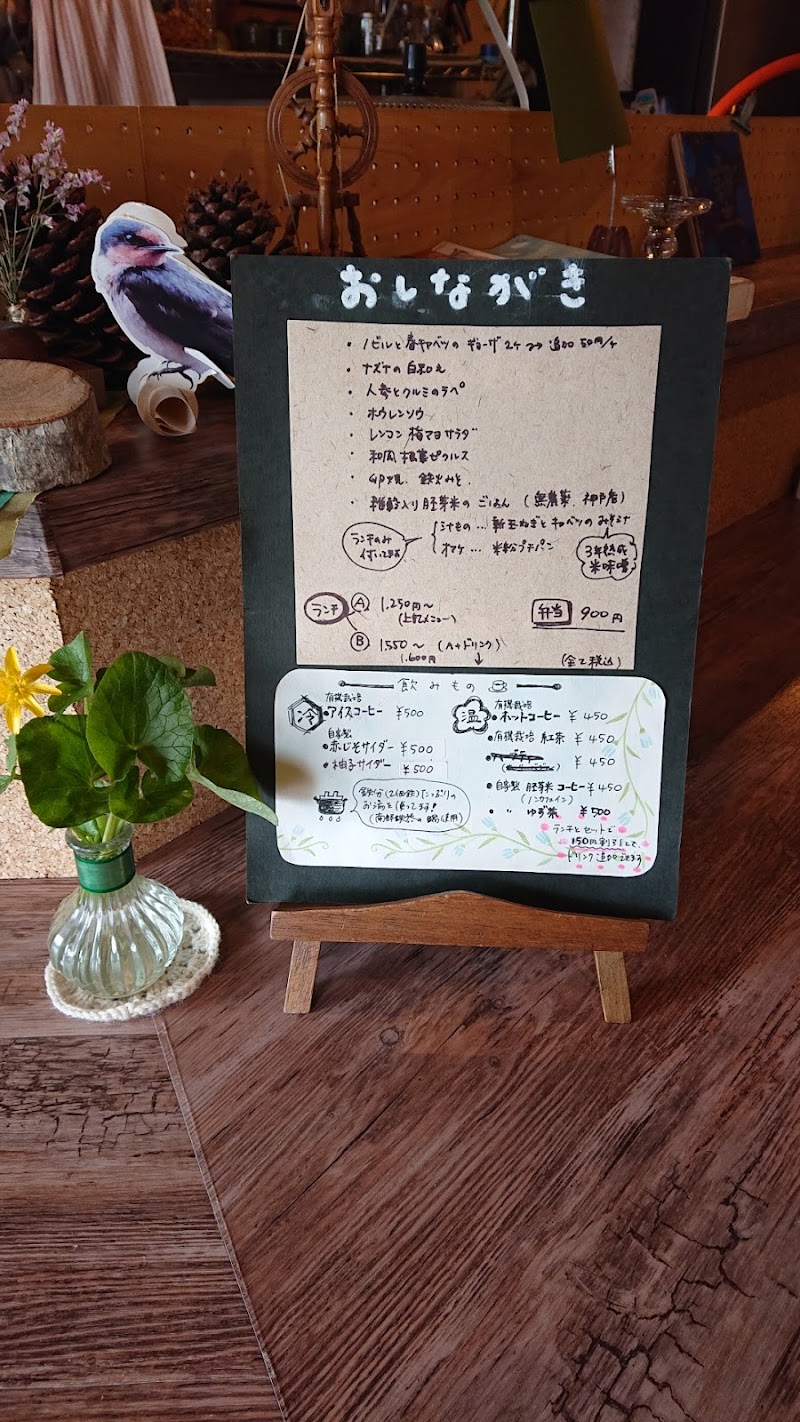 おしながき
・ノビルと春キャベツの ギョーザ 2ケ 追加 50円/ケ
・ナズナの白和え
・人参とクルミのラペ
・ホウレンソウ
・レンコン 梅マヨサラダ
・和風 根菜ピクルス
・雑穀入り胚芽米の ごはん (無農薬、神戸産)
ランチのみ
付いてます
汁もの… 新玉ねぎと キャベツの みそ汁
オマケ… 米粉プチパン
3年熟成
米味噌
ランチ Ⓐ 1,250円〜
(上記メニュー)
弁当 900円
Ⓑ 1550〜 (A+ドリンク)
1,600円
(全て税込)
飲みもの
冷
有機栽培
・アイスコーヒー ¥500
自家製
・赤じそサイダー ¥500
・柚子サイダー ¥500
鉄分(2価鉄)たっぷりの
お湯を使ってます!
(南部鉄器の鍋使用)
温
有機栽培
・ホットコーヒー ¥450
・有機栽培 紅茶 ¥450
¥450
・自家製 胚芽米コーヒー ¥450
(ノンカフェイン)
・〃 ゆず茶 ¥500
ランチとセットで
150円割引して、
ドリンク追加できます